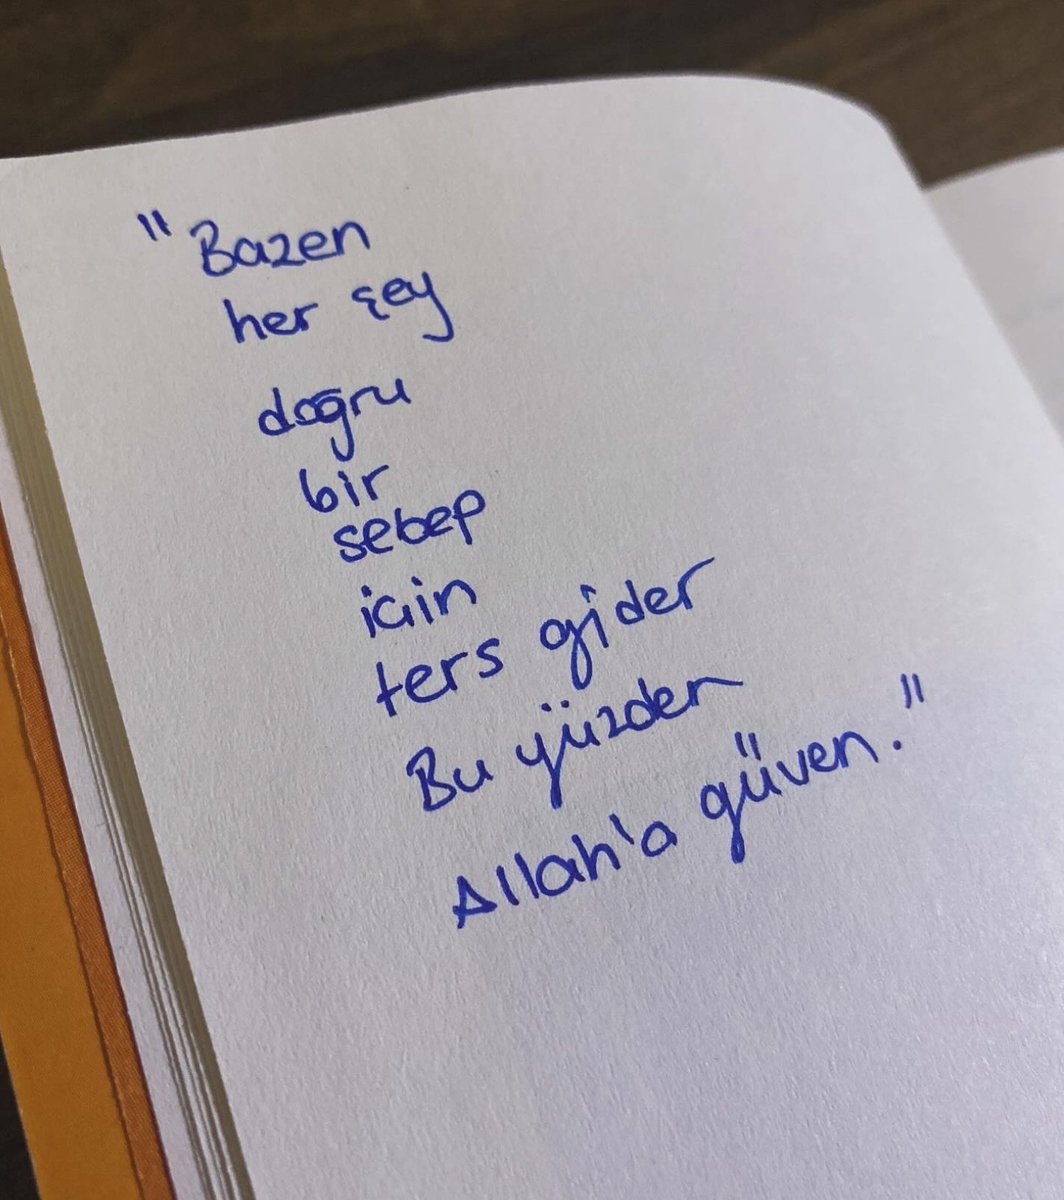 "Bazen
her şey
doğru
bir
sebep
için
ters gider
Bu yüzden
Allah'a güven."